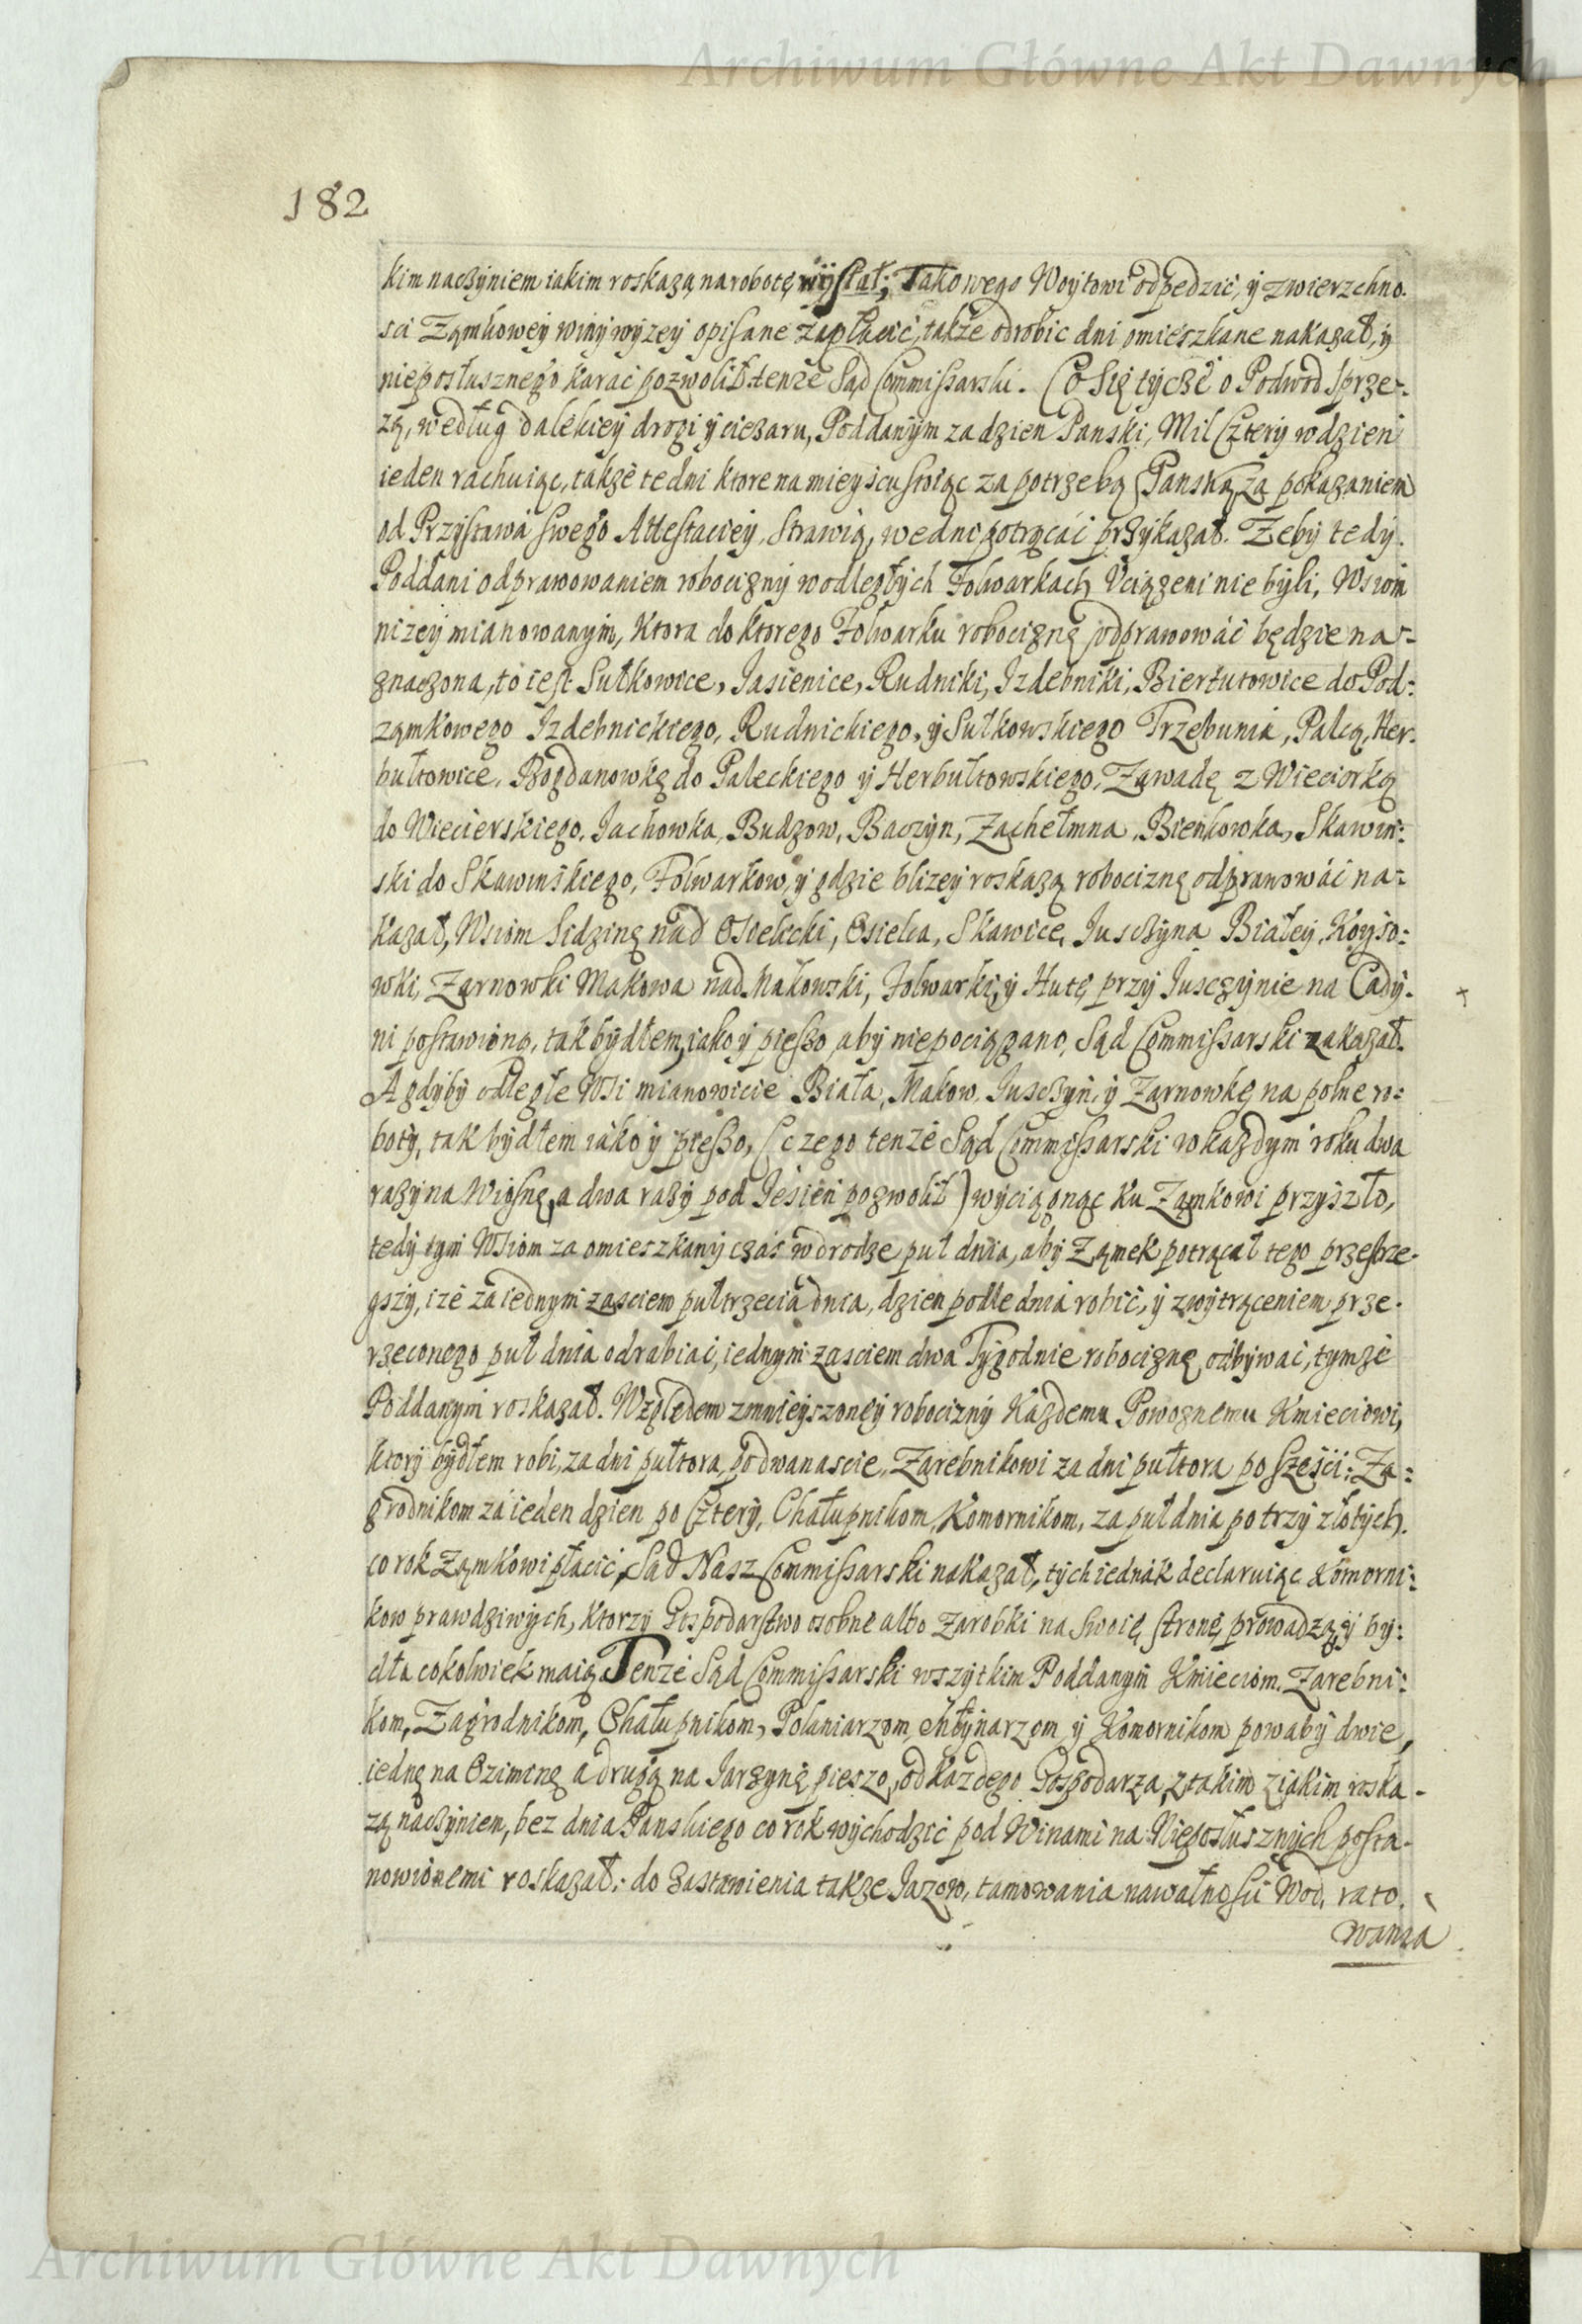 Archiwum Główne Akt Dawnych
182
kim naczyniem iakim roskazą na robotę wysłał; Takowego Woytowi odpedzic, y zwierzchno-
sci Zamkowey winy wyzey opisane zapłacić, także odrobic dni omieszkane nakazał, y
nieposłusznego karac pozwolił tenże Sąd Commissarski. Co się tycze o Podwod sprze-
zą, według dalekiey drogi y ciezaru, Poddanym za dzien Panski, Mil Cztery w dzien
ieden rachuiąc, takze te dni ktore na mieyscu stoiąc za potrzebą Panską, za pokazaniem
od Przystawa swego Attestaciey, strawią, we dni potrącać przykazał. Zeby tedy
Poddani odprawowaniem robocizny w odległych Folwarkach Uciązeni nie byli, Wsiom
nizey mianowanym, ktora do ktorego Folwarku robociznę odprawować będzie na-
znaczona, to iest Sułkowice, Jasienice, Rudniki, Izdebniki, Biertutowice do Pod:
zamkowego Izdebnickiego, Rudnickiego, y Sułkowskiego Trzebunia, Palcą, Her-
bułtowice, Bogdanowkę do Paleckiego y Herbułtowskiego, Zawadę z Wieciorką
do Wiecierskiego, Jachowka, Budzow, Baczyn, Zachełmna, Bienkowka, Skawin:
ski do Skawinskiego, Folwarkow, y gdzie blizey roskazą robociznę odprawować na-
kazał, Wsiom Sidzinę nad Osielecki, Osielca, Skawice, Juszczyna Białey, Koyso:
wki, Zarnowki Makowa nad Makowski, Folwarki, y Hutę przy Jusczynie na Cady-
ni postawioną, tak bydłem, iako y pieszo, aby niepociągano, Sąd Commissarski zakazał.
A gdyby odległe Wsi mianowicie Biała, Makow, Jusczyn, y Zarnowkę na polne ro:
boty, tak bydłem iako y pieszo, (czego tenże Sąd Commissarski w kazdym roku dwa
razy na Wiosnę, a dwa razy pod Jesien pozwolił) wyciągnąc ku Zamkowi przyszło,
tedy tym Wsiom za omieszkany czas w drodze puł dnia, aby Zamek potrącał tego przestrze-
gszy, iże za iednym zasciem pułtrzecia dnia, dzien podle dnia robić, y z wytrąceniem prze-
rzeconego puł dnia odrabiac, iednym zasciem dwa Tygodnie robociznę odbywac, tymże
Poddanym roskazał. Względem zmnieyszoney robocizny Kazdemu Powoznemu Kmieciowi,
ktory bydłem robi, za dni pułtora, po dwanascie, Zarebnikowi za dni pułtora po szesci; Za:
grodnikom za ieden dzien po Cztery, Chałupnikom, Komornikom, za puł dnia po trzy złotych.
co rok Zamkowi płacić, Sąd Nasz Commissarski nakazał, tych iednak declaruiąc komorni:
kow prawdziwych, ktorzy Gospodarstwo osobne albo zarobki na swoię stronę prowadzą y by:
dła cokolwiek maią Tenże Sąd Commissarski wszytkim Poddanym Kmieciom, Zarebni:
kom, Zagrodnikom, Chałupnikom, Polaniarzom, Młynarzom y Komornikom powaby dwie,
iednę na Oziminę a drugą na Jarzynę, pieszo, od kazdego Gospodarza, z takim z iakim roska-
zą naczyniem, bez dnia Panskiego co rok wychodzic pod Winami na Nieposłusznych posta-
nowionemi roskazał; do zastawienia także Jazow, tamowania nawałnosci Wod, rato-
wania
Archiwum Główne Akt Dawnych